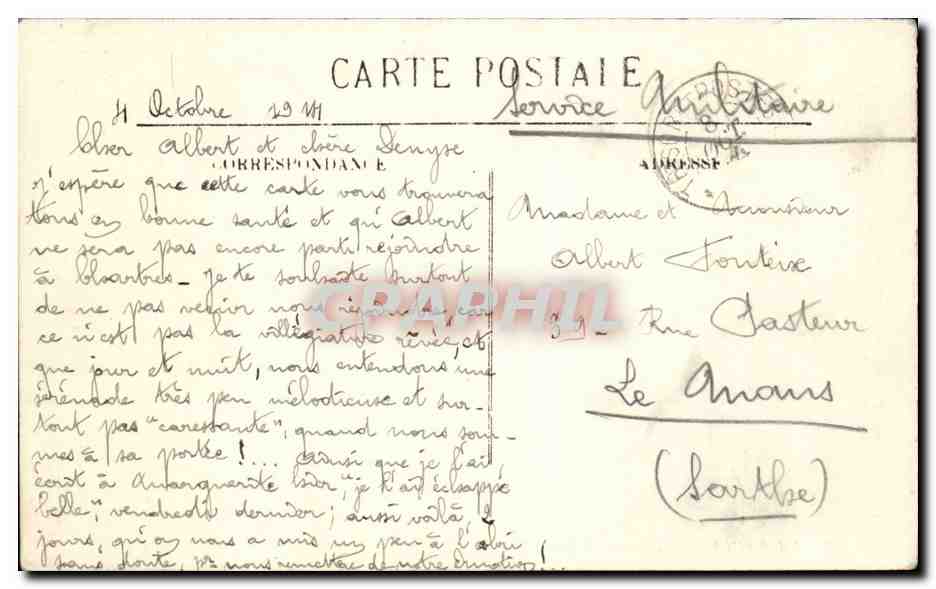 CARTE POSTALE
Service Militaire
4 Octobre 1914
Cher Albert et chère Denyse
CORRESPONDANCE
ADRESSE
J'espère que cette carte vous trouvera
tous en bonne santé et qu'Albert
ne sera pas encore parti rejoindre
à Chartres - Je te souhaite surtout
de ne pas venir nous rejoindre car
ce n'est pas la villégiature rêvée, et
que jour et nuit, nous entendons une
sérénade très peu mélodieuse et sur-
tout pas "caressante", quand nous som-
mes à sa portée !... Ainsi que je l'ai
écrit à Marguerite hier, "je l'ai échappé
belle", vendredi dernier; aussi voilà 2
jours, qu'on nous a mis un peu à l'abri
sans doute, pr nous remettre de notre Émotion !..
Madame et Monsieur
Albert Fonteix
39 - Rue Pasteur
Le Mans
(Sarthe)
CPAPHIL